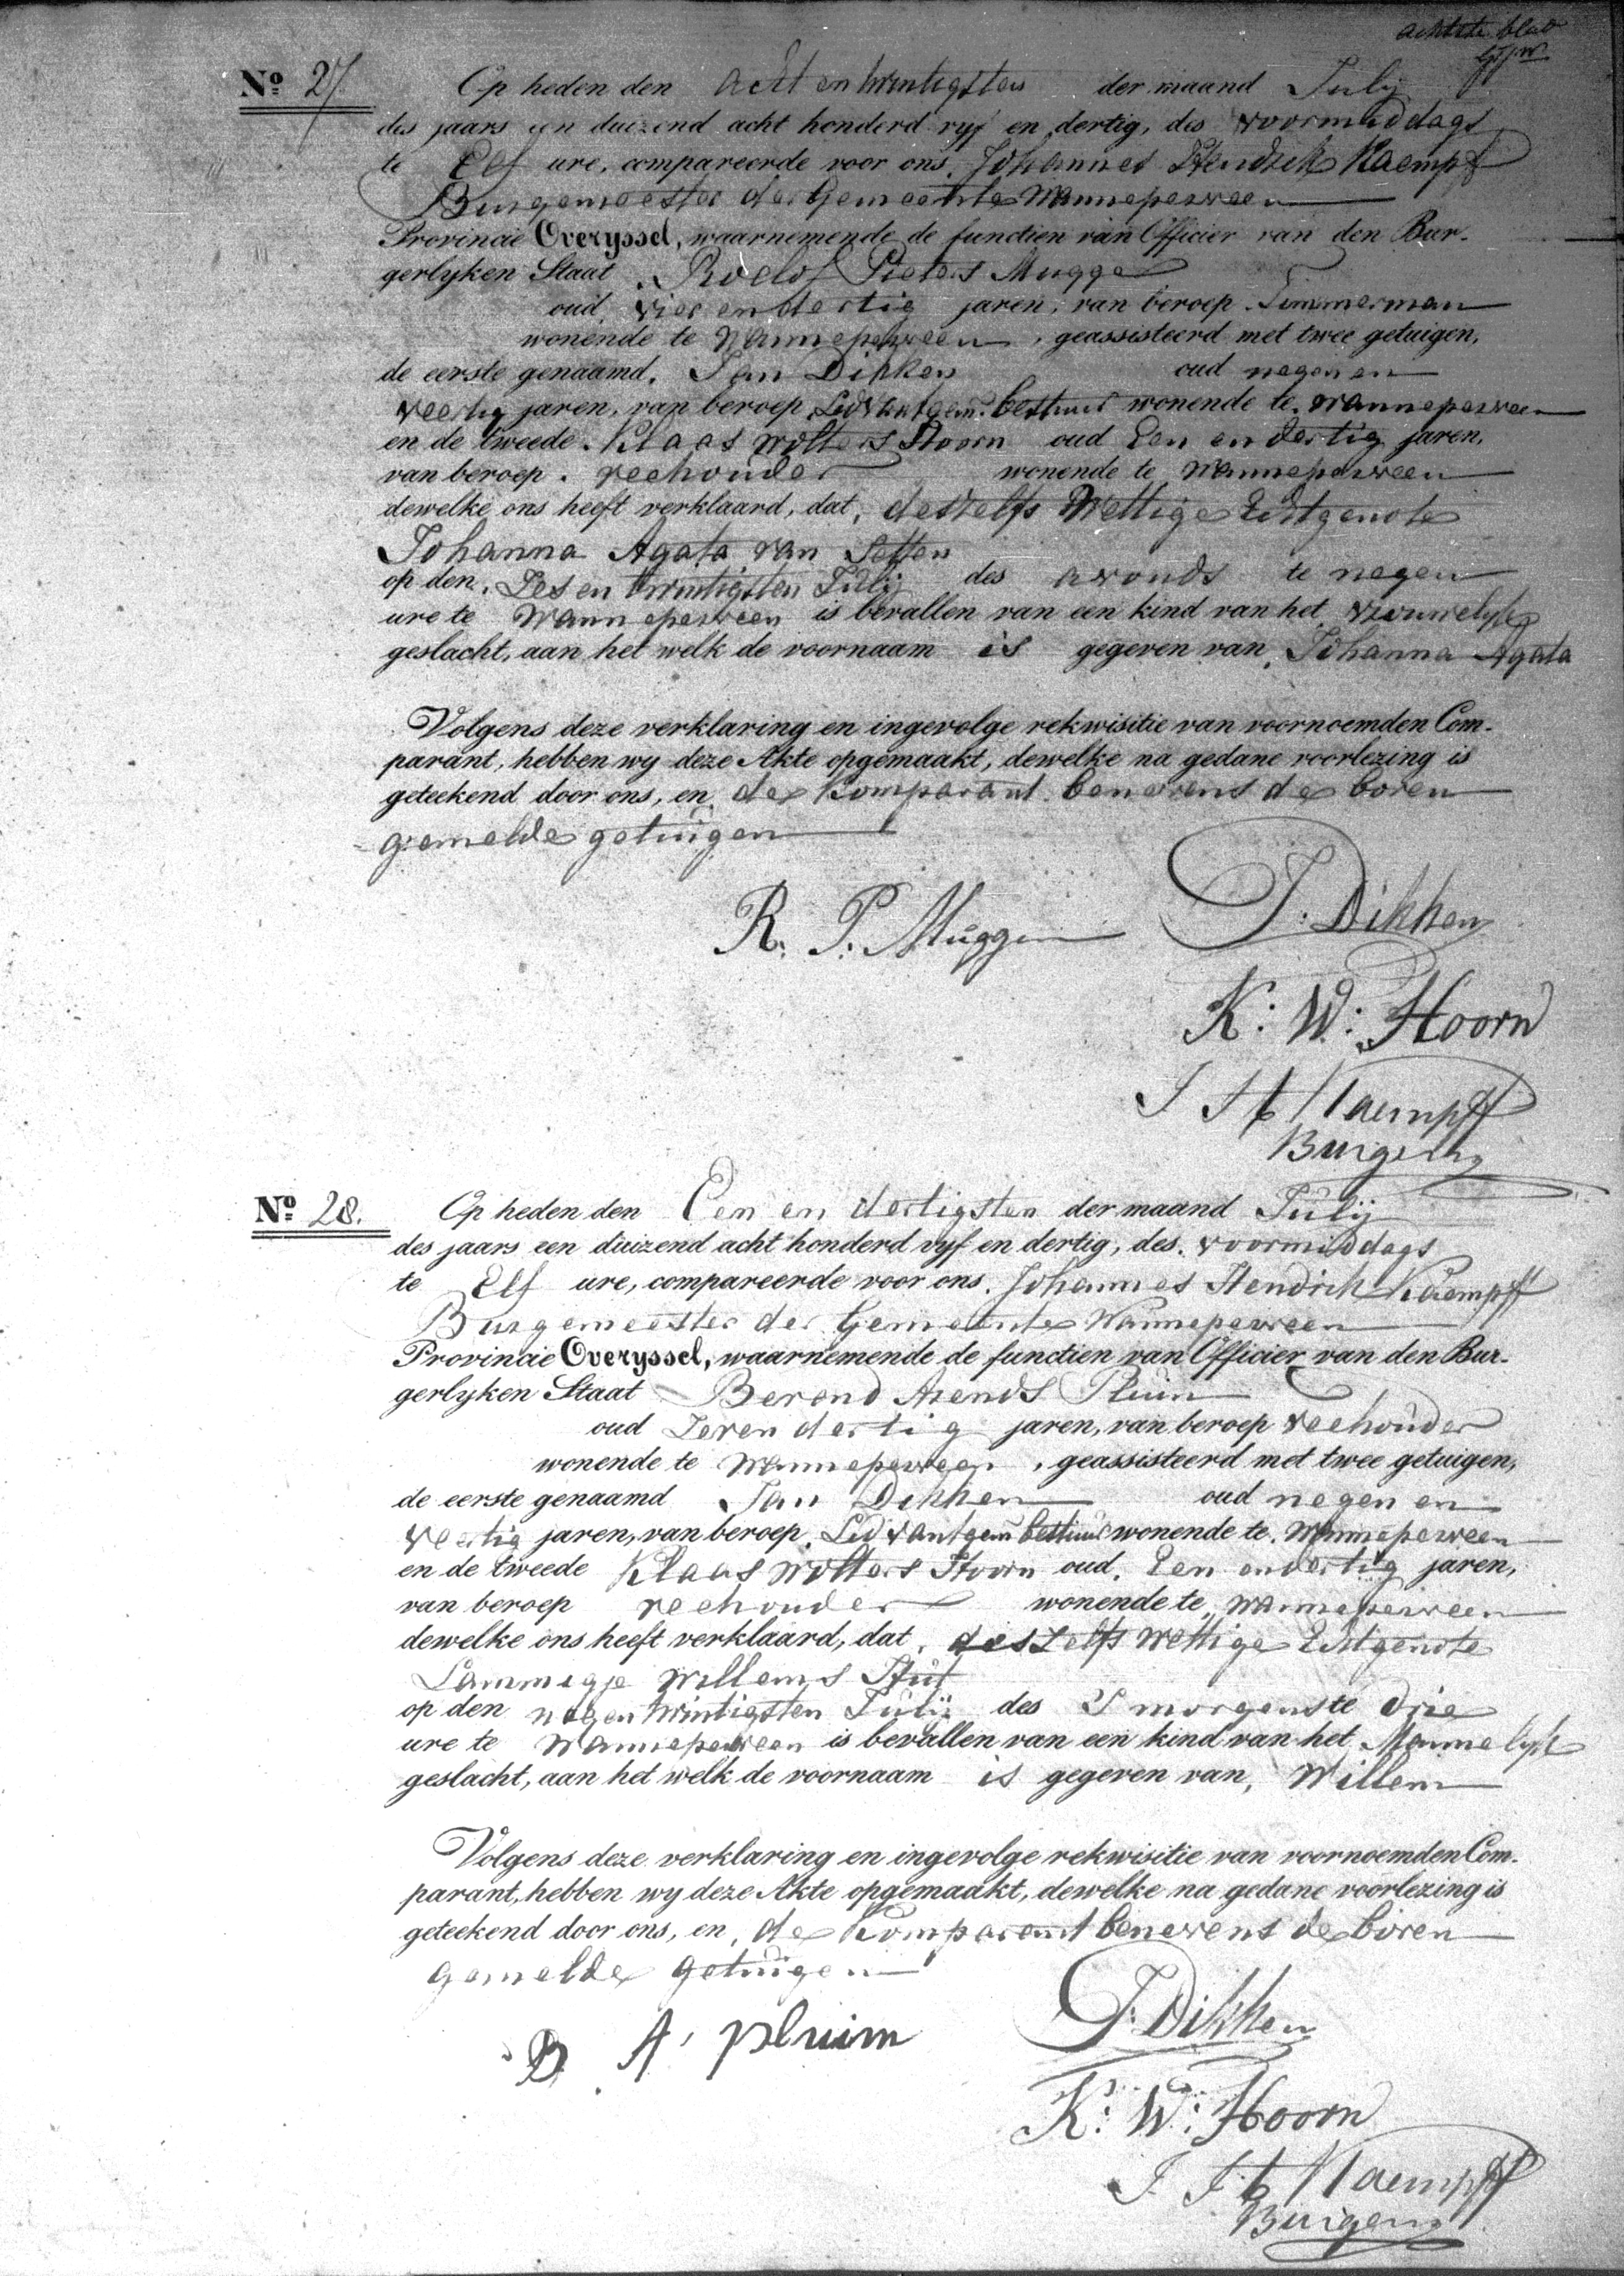 achtste blad
No. 27. Op heden den acht en twintigsten der maand Julij
des jaars een duizend acht honderd vyf en dertig, des voormiddags
te Elf ure, compareerde voor ons, Johannes Hendrik Kaempff
Burgemeester der Gemeente Wanneperveen
Provincie Overyssel, waarnemende de functien van Officier van den Bur-
gerlyken Staat, Roelof Pieters Mugge
oud, vier en dertig jaren, van beroep Timmerman
wonende te Wanneperveen, geassisteerd met twee getuigen,
de eerste genaamd, Jan Dikken oud negen en
veertig jaren, van beroep, Lid van t gem. bestuur wonende te, Wanneperveen
en de tweede, Klaas Wolters Hoorn oud Een en dertig jaren,
van beroep, veehouder wonende te Wanneperveen
dewelke ons heeft verklaard, dat, deszelfs Wettige Echtgenote
Johanna Agata van Setten
op den, Zes en twintigsten Julij des avonds te negen
ure te Wanneperveen is bevallen van een kind van het vrouwelyke
geslacht, aan het welk de voornaam is gegeven van, Johanna Agata
Volgens deze verklaring en ingevolge rekwisitie van voornoemden Com-
parant, hebben wy deze Akte opgemaakt, dewelke na gedane voorlezing is
geteekend door ons, en, de Komparant benevens de boven
gemelde getuigen
R. P. Muggen J. Dikken
K: W: Hoorn
J H Kaempff
Burgem
No. 28. Op heden den Een en dertigsten der maand Julij
des jaars een duizend acht honderd vyf en dertig, des, voormiddags
te Elf ure, compareerde voor ons, Johannes Hendrik Kaempff
Burgemeester der Gemeente Wanneperveen
Provincie Overyssel, waarnemende de functien van Officier van den Bur-
gerlyken Staat Berend Arends Pluim
oud Zeven dertig jaren, van beroep veehouder
wonende te Wanneperveen, geassisteerd met twee getuigen,
de eerste genaamd Jan Dikken oud negen en
veertig jaren, van beroep, Lid van t gem bestuur wonende te, Wanneperveen
en de tweede Klaas Wolters Hoorn oud, Een en dertig jaren,
van beroep veehouder wonende te, Wanneperveen
dewelke ons heeft verklaard, dat, deszelfs Wettige Echtgenote
Lammigje Willems Stut
op den negen twintigsten Julij des S morgens te drie
ure te Wanneperveen is bevallen van een kind van het Mannelyk
geslacht, aan het welk de voornaam is gegeven van, Willem
Volgens deze verklaring en ingevolge rekwisitie van voornoemden Com-
parant, hebben wy deze Akte opgemaakt, dewelke na gedane voorlezing is
geteekend door ons, en, de Komparant benevens de boven
gemelde getuigen
B. A. pluim J. Dikken
K: W: Hoorn
J H Kaempff
Burgem